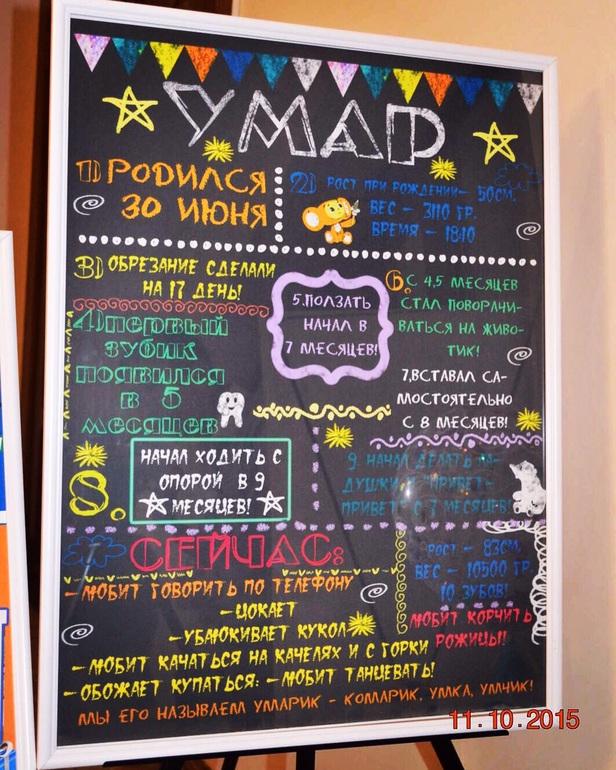 УМАР
1) РОДИЛСЯ
30 ИЮНЯ
2) РОСТ ПРИ РОЖДЕНИИ– 50СМ.
ВЕС – 3110 ГР.
ВРЕМЯ – 18:10
3) ОБРЕЗАНИЕ СДЕЛАЛИ
НА 17 ДЕНЬ!
4) ПЕРВЫЙ
ЗУБИК
ПОЯВИЛСЯ
В 5
МЕСЯЦЕВ
5.ПОЛЗАТЬ
НАЧАЛ В
7 МЕСЯЦЕВ!
6.С 4,5 МЕСЯЦЕВ
СТАЛ ПОВОРАЧИ-
ВАТЬСЯ НА ЖИВО-
ТИК!
7,ВСТАВАЛ СА-
МОСТОЯТЕЛЬНО
С 8 МЕСЯЦЕВ!
8.
НАЧАЛ ХОДИТЬ С
ОПОРОЙ В 9
МЕСЯЦЕВ!
9. НАЧАЛ ДЕЛАТЬ ЛА-
ДУШКИ И "ПРИВЕТ-
ПРИВЕТ" С 7 МЕСЯЦЕВ!
СЕЙЧАС:
– ЛЮБИТ ГОВОРИТЬ ПО ТЕЛЕФОНУ
– ЦОКАЕТ
–УБАЮКИВАЕТ КУКОЛ
– ЛЮБИТ КАЧАТЬСЯ НА КАЧЕЛЯХ И С ГОРКИ
– ОБОЖАЕТ КУПАТЬСЯ: – ЛЮБИТ ТАНЦЕВАТЬ!
РОСТ – 83СМ,
ВЕС – 10500 ГР.
10 ЗУБОВ!
ЛЮБИТ КОРЧИТЬ
РОЖИЦЫ!
МЫ ЕГО НАЗЫВАЕМ УМАРИК – КОМАРИК, УМКА, УМЧИК!
11.10.2015